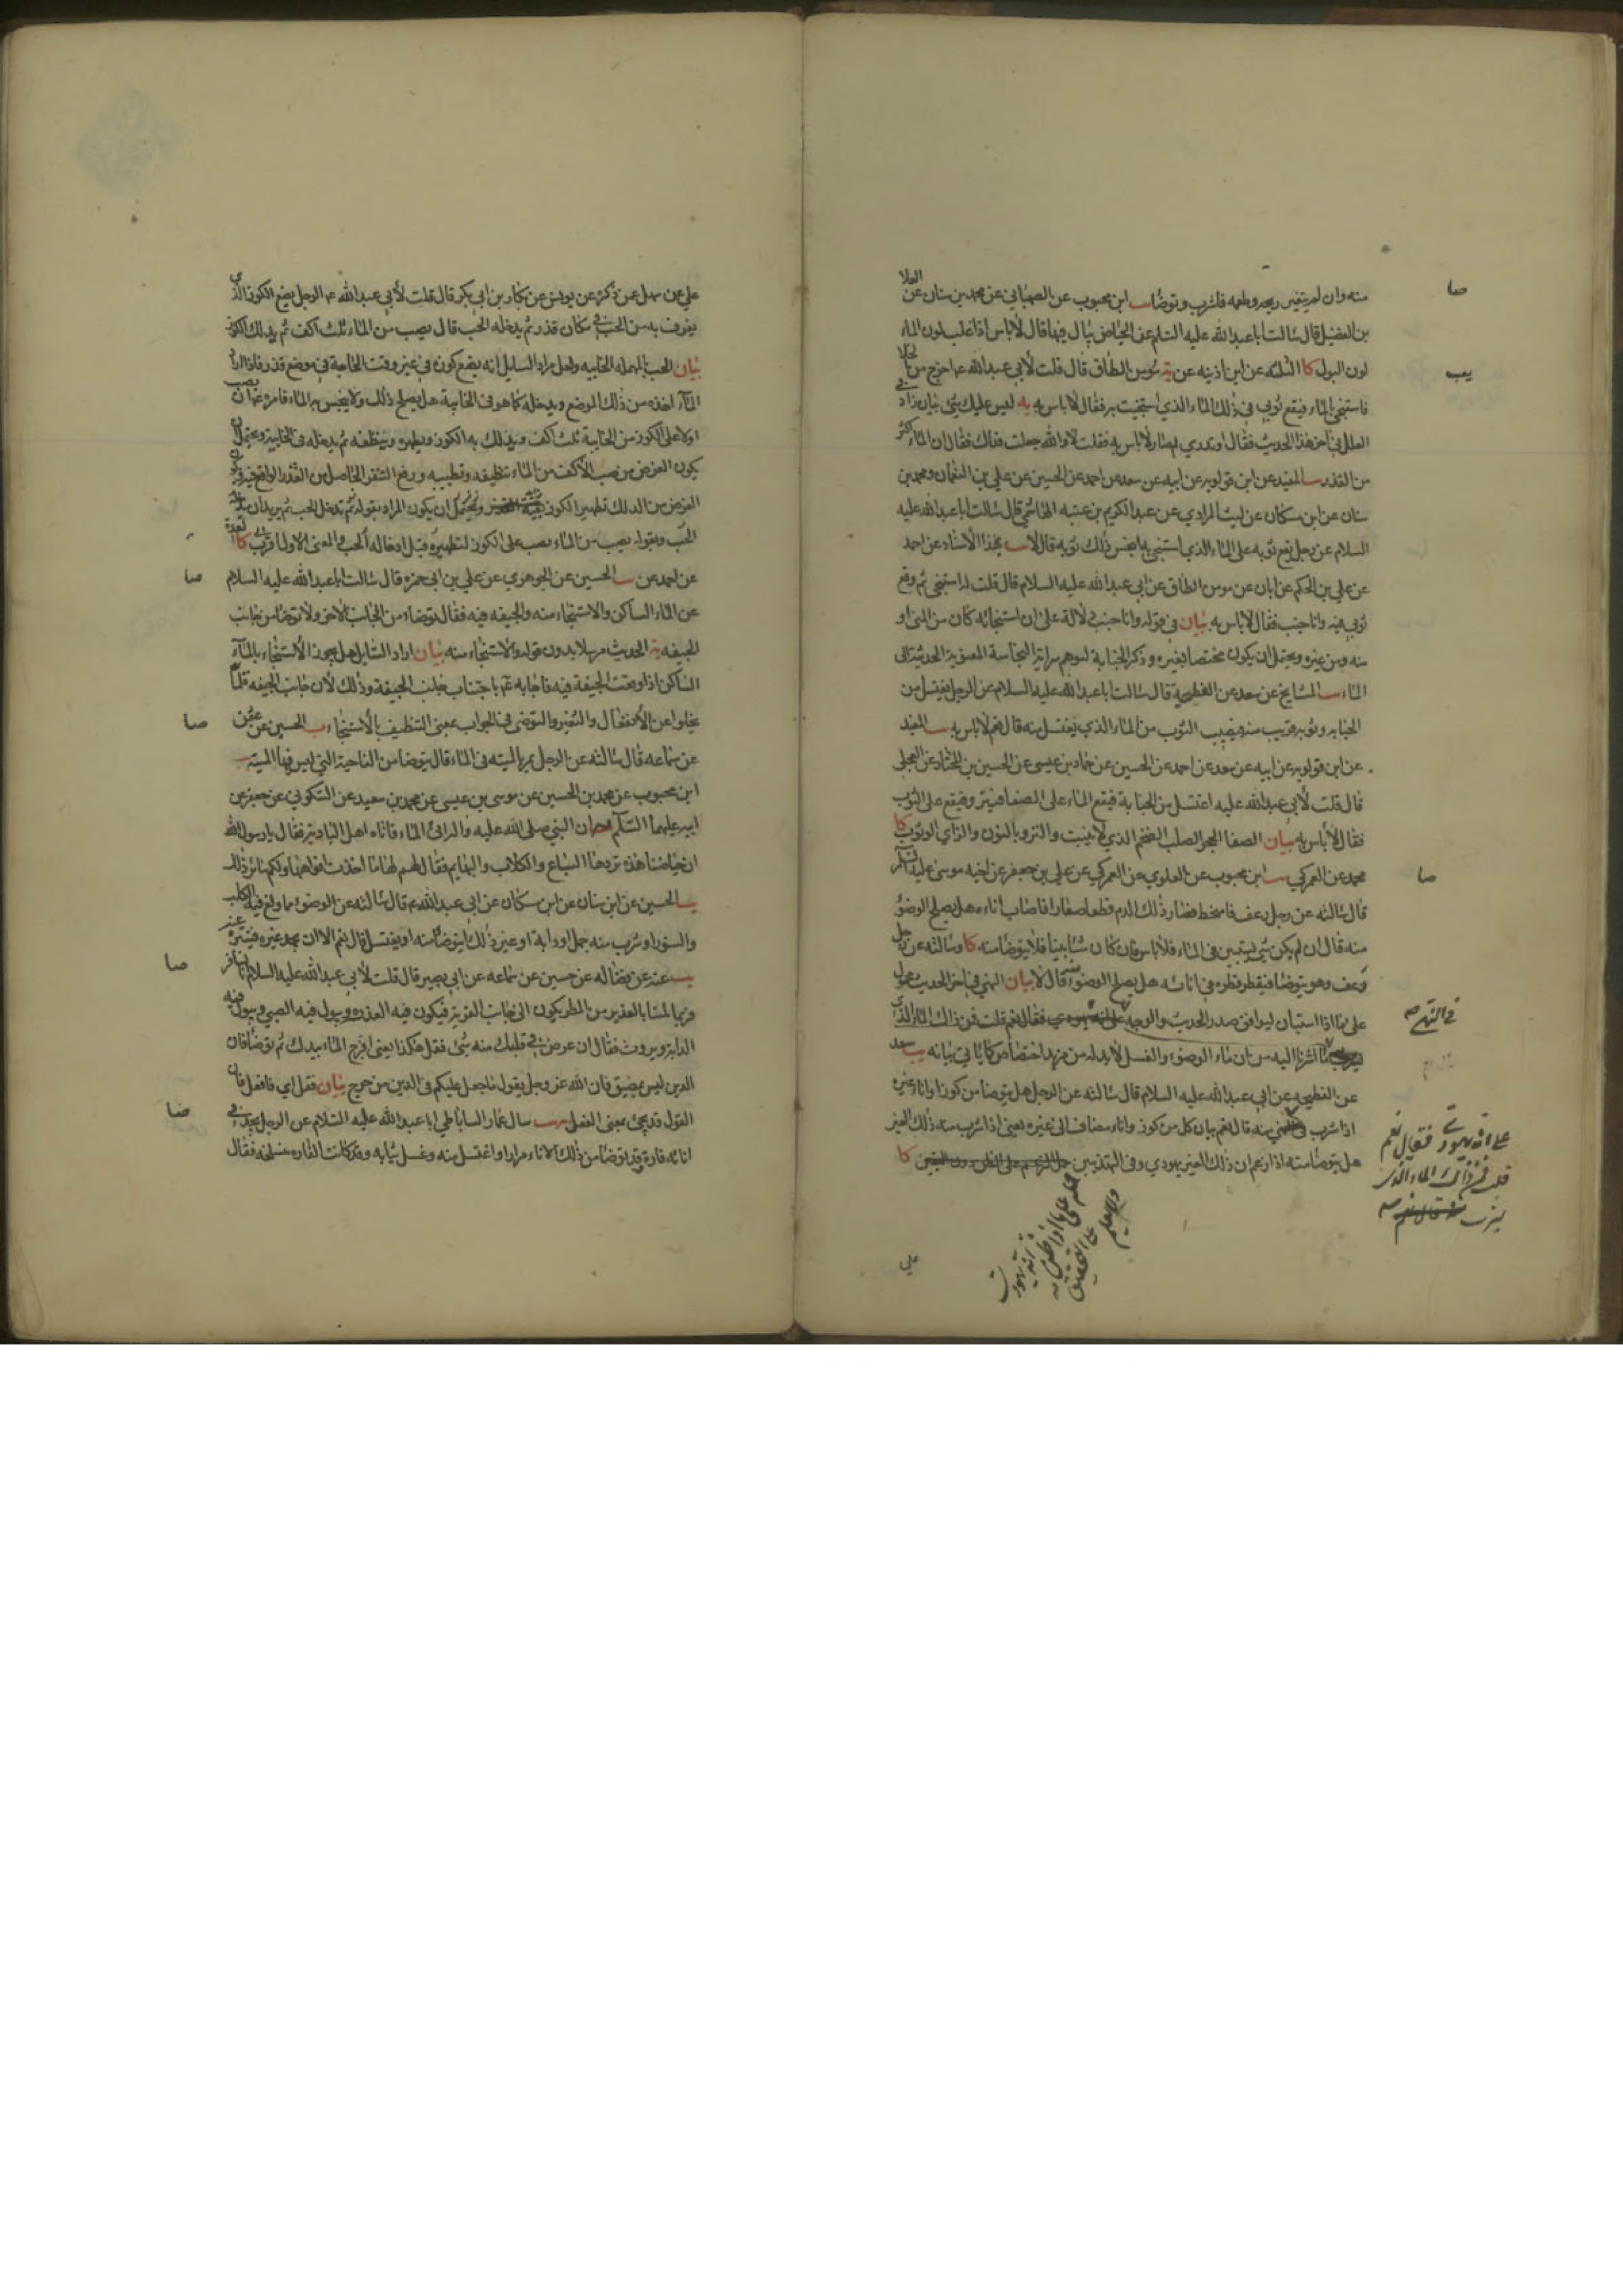 منه وان لم يتغير ريحه وطعمه فاشرب وتوضأ يب ابن محبوب عن الصهباني عن محمد بن سنان عن العلا
بن الفضيل قال سالت ابا عبدالله عليه السلم عن الحياض يبال فيها قال لا باس اذا غلب لون الماء
لون البول كا الثلثة عن ابن اذينه عن مؤمن الطاق قال قلت لأبي عبدالله ع اخرج من الخلا
فاستنجي بالماء فيقع ثوبي في ذلك الماء الذي استنجيت به فقال لا باس به يه ليس عليك شئ بيان زاد في
العلل في اخر هذا الحديث فقال اوتدري لم صار لا باس به فقلت لا والله جعلت فداك فقال ان الماء اكثر
من القذر يب المفيد عن ابن قولويه عن ابيه عن سعد عن احمد عن الحسين عن علي بن النعمان ومحمد بن
سنان عن ابن مسكان عن ليث المرادي عن عبدالكريم بن عتبه الهاشمي قال سالت ابا عبدالله عليه
السلام عن رجل يقع ثوبه على الماء الذي استنجي به اينجس ذلك ثوبه قال لا يب بهذا الاسناد عن احمد
عن علي بن الحكم عن ابان عن مومن الطاق عن ابي عبدالله عليه السلام قال قلت له استنجي ثم يقع
ثوبي فيه وانا جنب فقال لا باس به بيان في قوله وانا جنب دلالة على ان استنجائه كان من المني او
منه ومن غيره ويحتمل ان يكون مختصا بغيره وذكر الجنابة لتوهم سراية النجاسة المعنوية الحدثية الى
الماء يب المشايخ عن سعد عن الفطحية قال سالت ابا عبدالله عليه السلام عن الرجل يغتسل من
الجنابه وثوبه قريب منه فيصيب الثوب من الماء الذي يغتسل منه قال نعم لا باس به يب المفيد
عن ابن قولويه عن ابيه عن سعد عن احمد عن الحسين عن حماد بن عيسى عن الحسين بن المختار عن العجلي
قال قلت لأبي عبدالله عليه اغتسل من الجنابة فيقع الماء على الصفا فينزو فيقع على الثوب
فقال لا باس به بيان الصفا الحجر الصلب الضخم الذي لا ينبت والنزو بالنون والزاي الوثوب كا
محمد عن العمركي يب ابن محبوب عن العلوي عن العمركي عن علي بن جعفر عن اخيه موسى عليه السلم
قال سالته عن رجل رعف فامتخط فصار ذلك الدم قطعا صغارا فاصاب اناءه هل يصلح الوضوء
منه قال ان لم يكن شئ يستبين في الماء فلا باس فان كان شيئا بينا فلا يتوضا منه كا وسالته عن رجل
رعف وهو يتوضا فيقطر قطره في انائه هل يصلح الوضوء منه قال لا بيان النهي في اخر الحديث محمول
على ما اذا استبان ليوافق صدر الحديث والوجه على انه يهودي فقال نعم قلت فمن ذاك الماء الذي
ما اشرنا اليه من ان ماء الوضوء والغسل لا بد له من مزيد اختصاص كما ياتي بيانه يب سعد
عن الفطحيه عن ابي عبدالله عليه السلام قال سالته عن الرجل هل يتوضا من كوز او اناء غيره
اذا شرب منه قال نعم بيان كل من كوز واناء مضاف الى غيره يعني اذا شرب منه ذلك الغير
هل يتوضا منه اذا زعم ان ذلك الغير يهودي وفي التهذيبين حمل الزعم على الظن دون اليقين كا
صا
يب
صا
في التهـ صه
على انه يهودي فقال نعم
قلت فمن ذاك الماء الذي
يشرب منه قال نعم صه
حمله على ما اذا ظن انه يهودي
ولا يعلم على التحقيق
علي
علي عن سهل عن ذكره عن يونس عن بكار بن ابي بكر قال قلت لأبي عبدالله ع الرجل يضع الكوز الذي
يغرف به من الحب في مكان قذر ثم يدخله الحب قال يصب من الماء ثلث اكف ثم يدلك الكوز
بيان الحب بالمهمله الخابيه ولعل مراد السايل انه يضع كوزه في غير وقت الحاجة في موضع قذر فاذا اراد
الماء اخذه من ذلك الموضع ويدخله كما هو في الخابية هل يصلح ذلك ولا ينجس به الماء فامره ع ان يصب
اولا على الكوز من الخابية ثلث اكف ويدلك به الكوز ويطهره وينظفه ثم يدخله في الخابية ويحتمل ان
يكون الغرض من صب الاكف من الماء تنظيفه وتطييبه ورفع التنفر الحاصل من القذر الواقع فيه
الغرض من الدلك تطهير الكوز ويحتمل ان يكون المراد بقوله ثم تدخل الحب ثم يريد ان يدخله
الحب وبقوله يصب من الماء يصب على الكوز لتطهيره قبل ادخاله الحب والمعنى الاول اقرب كا العدة
عن احمد عن يب الحسين عن الجوهري عن علي بن ابي حمزه قال سالت ابا عبدالله عليه السلام
عن الماء الساكن والاستنجاء منه والجيفه فيه فقال توضاء من الجانب الاخر ولا توضا من جانب
الجيفه يه الحديث مرسلا بدون قوله والاستنجاء منه بيان اراد السايل هل يجوز الاستنجاء بالماء
الساكن اذا وقعت الجيفة فيه فاجابه ع باجتناب جانب الجيفة وذلك لان جانب الجيفه قلما
يخلوا عن الانفعال والتغير والتوضي في الجواب بمعنى التنظيف بالاستنجاء يب الحسين عن عثمن
عن سماعه قال سالته عن الرجل يمر بالميته في الماء قال يتوضا من الناحية التي ليس فيها الميته يب
ابن محبوب عن محمد بن الحسين عن موسى بن عيسى عن محمد بن سعيد عن السكوني عن جعفر عن
ابيه عليهما السلم ان النبي صلى الله عليه واله اتى الماء فاتاه اهل البادية فقال يا رسول الله
ان حياضنا هذه تردها السباع والكلاب والبهايم فقال لهم لها ما اخذت افواهها ولكم سائر ذلك
يب الحسين عن ابن سنان عن ابن مسكان عن ابي عبدالله ع قال سالته عن الوضوء مما ولغ فيه الكلب
والسنور او شرب منه جمل او دابة او غير ذلك ايتوضا منه او يغتسل قال نعم الا ان تجد غيره فتنزه عنه
يب عنه عن فضاله عن حسين عن سماعه عن ابي بصير قال قلت لأبي عبدالله عليه السلام انا نسافر
فربما بلينا بالغدير من المطر يكون الى جانب القرية فيكون فيه العذره ويبول فيه الصبي ويبول فيه
الدابة ويروث فقال ان عرض في قلبك منه شئ فقل هكذا يعني افرج الماء بيدك ثم توضأ فان
الدين ليس بمضيق فان الله عز وجل يقول ما جعل عليكم في الدين من حرج بيان فقل اي فافعل فان
القول قد يجئ بمعنى الفعل يب سال عمار الساباطي ابا عبدالله عليه السلام عن الرجل يجد في
انائه فارة وقد توضأ من ذلك الاناء مرارا واغتسل منه وغسل ثيابه وقد كانت الفاره منسلخة فقال
صا
صا
صا
صا